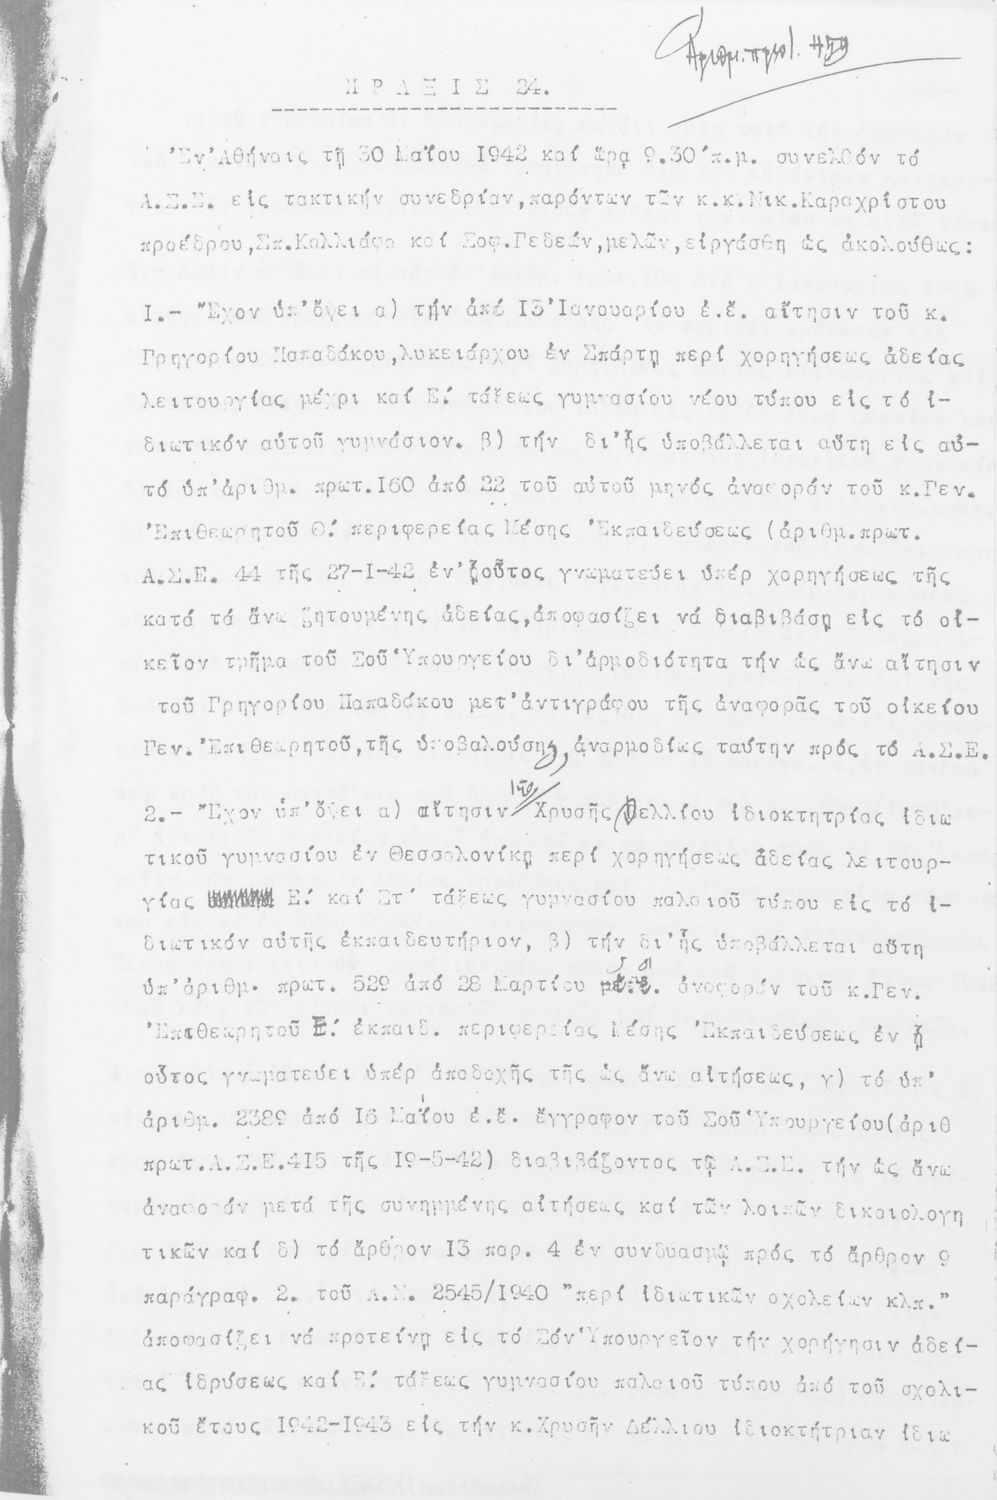 Ἀριθμ. πρωτ. 459
ΠΡΑΞΙΣ 24.
Ἐν Ἀθήναις τῇ 30 Μαΐου 1942 καί ὥρᾳ 9.30΄π.μ. συνελθόν τό
Α.Σ.Ε. εἰς τακτικήν συνεδρίαν,παρόντων τῶν κ.κ.Νικ.Καραχρίστου
προέδρου,Σπ.Καλλιάφα καί Σοφ.Γεδεών,μελῶν,εἰργάσθη ὡς ἀκολούθως:
Ι.- Ἔχον ὑπ'ὄψει α) τήν ἀπό Ι3 Ἰανουαρίου ἐ.ἔ. αἴτησιν τοῦ κ.
Γρηγορίου Παπαδάκου,λυκειάρχου ἐν Σπάρτῃ περί χορηγήσεως ἀδείας
λειτουργίας μέχρι καί Ε΄ τάξεως γυμνασίου νέου τύπου εἰς τό ἰ-
διωτικόν αὐτοῦ γυμνάσιον. β) τήν δι'ἧς ὑποβάλλεται αὕτη εἰς αὐ-
τό ὑπ'ἀριθμ. πρωτ.Ι60 ἀπό 22 τοῦ αὐτοῦ μηνός ἀναφοράν τοῦ κ.Γεν.
Ἐπιθεωρητοῦ Θ΄ περιφερείας Μέσης Ἐκπαιδεύσεως (ἀριθμ.πρωτ.
Α.Σ.Ε. 44 τῆς 27-Ι-42 ἐν ᾗ οὗτος γνωματεύει ὑπέρ χορηγήσεως τῆς
κατά τά ἄνω ζητουμένης ἀδείας,ἀποφασίζει νά διαβιβάσῃ εἰς τό οἰ-
κεῖον τμῆμα τοῦ Σοῦ Ὑπουργείου δι'ἁρμοδιότητα τήν ὡς ἄνω αἴτησιν
τοῦ Γρηγορίου Παπαδάκου μετ'ἀντιγράφου τῆς ἀναφορᾶς τοῦ οἰκείου
Γεν.Ἐπιθεωρητοῦ,τῆς ὑποβαλούσης, ἀναρμοδίως ταύτην πρός τό Α.Σ.Ε.
2.- Ἔχον ὑπ'ὄψει α) αἴτησιν τῆς Χρυσῆς Δελλίου ἰδιοκτητρίας ἰδιω
τικοῦ γυμνασίου ἐν Θεσσαλονίκῃ περί χορηγήσεως ἀδείας λειτουρ-
γίας Ε΄ καί Στ΄ τάξεως γυμνασίου παλαιοῦ τύπου εἰς τό ἰ-
διωτικόν αὐτῆς ἐκπαιδευτήριον, β) τήν δι'ἧς ὑποβάλλεται αὕτη
ὑπ'ἀριθμ. πρωτ. 529 ἀπό 28 Μαρτίου ἐ.ἔ. ἀναφοράν τοῦ κ.Γεν.
Ἐπιθεωρητοῦ Ε΄ ἐκπαιδ. περιφερείας Μέσης Ἐκπαιδεύσεως ἐν ᾗ
οὗτος γνωματεύει ὑπέρ ἀποδοχῆς τῆς ὡς ἄνω αἰτήσεως, γ) τό ὑπ'
ἀριθμ. 2389 ἀπό Ι6 Μαΐου ἐ.ἔ. ἔγγραφον τοῦ Σοῦ Ὑπουργείου(ἀριθ
πρωτ.Α.Σ.Ε.4Ι5 τῆς Ι9-5-42) διαβιβάζοντος τῷ Α.Σ.Ε. τήν ὡς ἄνω
ἀναφοράν μετά τῆς συνημμένης αἰτήσεως καί τῶν λοιπῶν δικαιολογη
τικῶν καί δ) τό ἄρθρον Ι3 παρ. 4 ἐν συνδυασμῷ πρός τό ἄρθρον 9
παράγραφ. 2. τοῦ Α.Ν. 2545/Ι940 "περί ἰδιωτικῶν σχολείων κλπ."
ἀποφασίζει νά προτείνῃ εἰς τό Σόν Ὑπουργεῖον τήν χορήγησιν ἀδεί-
ας ἱδρύσεως καί Ε΄ τάξεως γυμνασίου παλαιοῦ τύπου ἀπό τοῦ σχολι-
κοῦ ἔτους Ι942-Ι943 εἰς τήν κ.Χρυσῆν Δέλλιου ἰδιοκτήτριαν ἰδιω